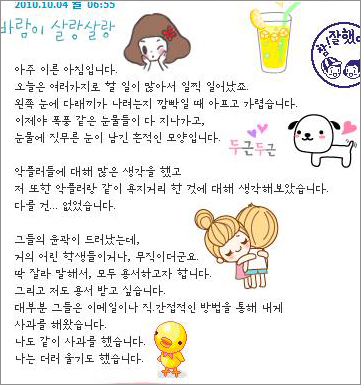 2010.10.04 월 06:55
바람이 살랑살랑
참! 잘했어
아주 이른 아침입니다.
오늘은 여러가지로 할 일이 많아서 일찍 일어났죠.
왼쪽 눈에 다래끼가 나려는지 깜빡일 때 아프고 가렵습니다.
이제야 폭풍 같은 눈물들이 다 지나가고,
눈물에 짓무른 눈이 남긴 흔적인 모양입니다.
두근두근
악플러들에 대해 많은 생각을 했고
저 또한 악플러랑 같이 욕지거리 한 것에 대해 생각해보았습니다.
다를 건... 없었습니다.
그들의 윤곽이 드러났는데,
거의 어린 학생들이거나, 무직이더군요.
딱 잘라 말해서, 모두 용서하고자 합니다.
그리고 저도 용서 받고 싶습니다.
대부분 그들은 이메일이나 직.간접적인 방법을 통해 내게
사과를 해왔습니다.
나도 같이 사과를 했습니다.
나는 더러 울기도 했습니다.